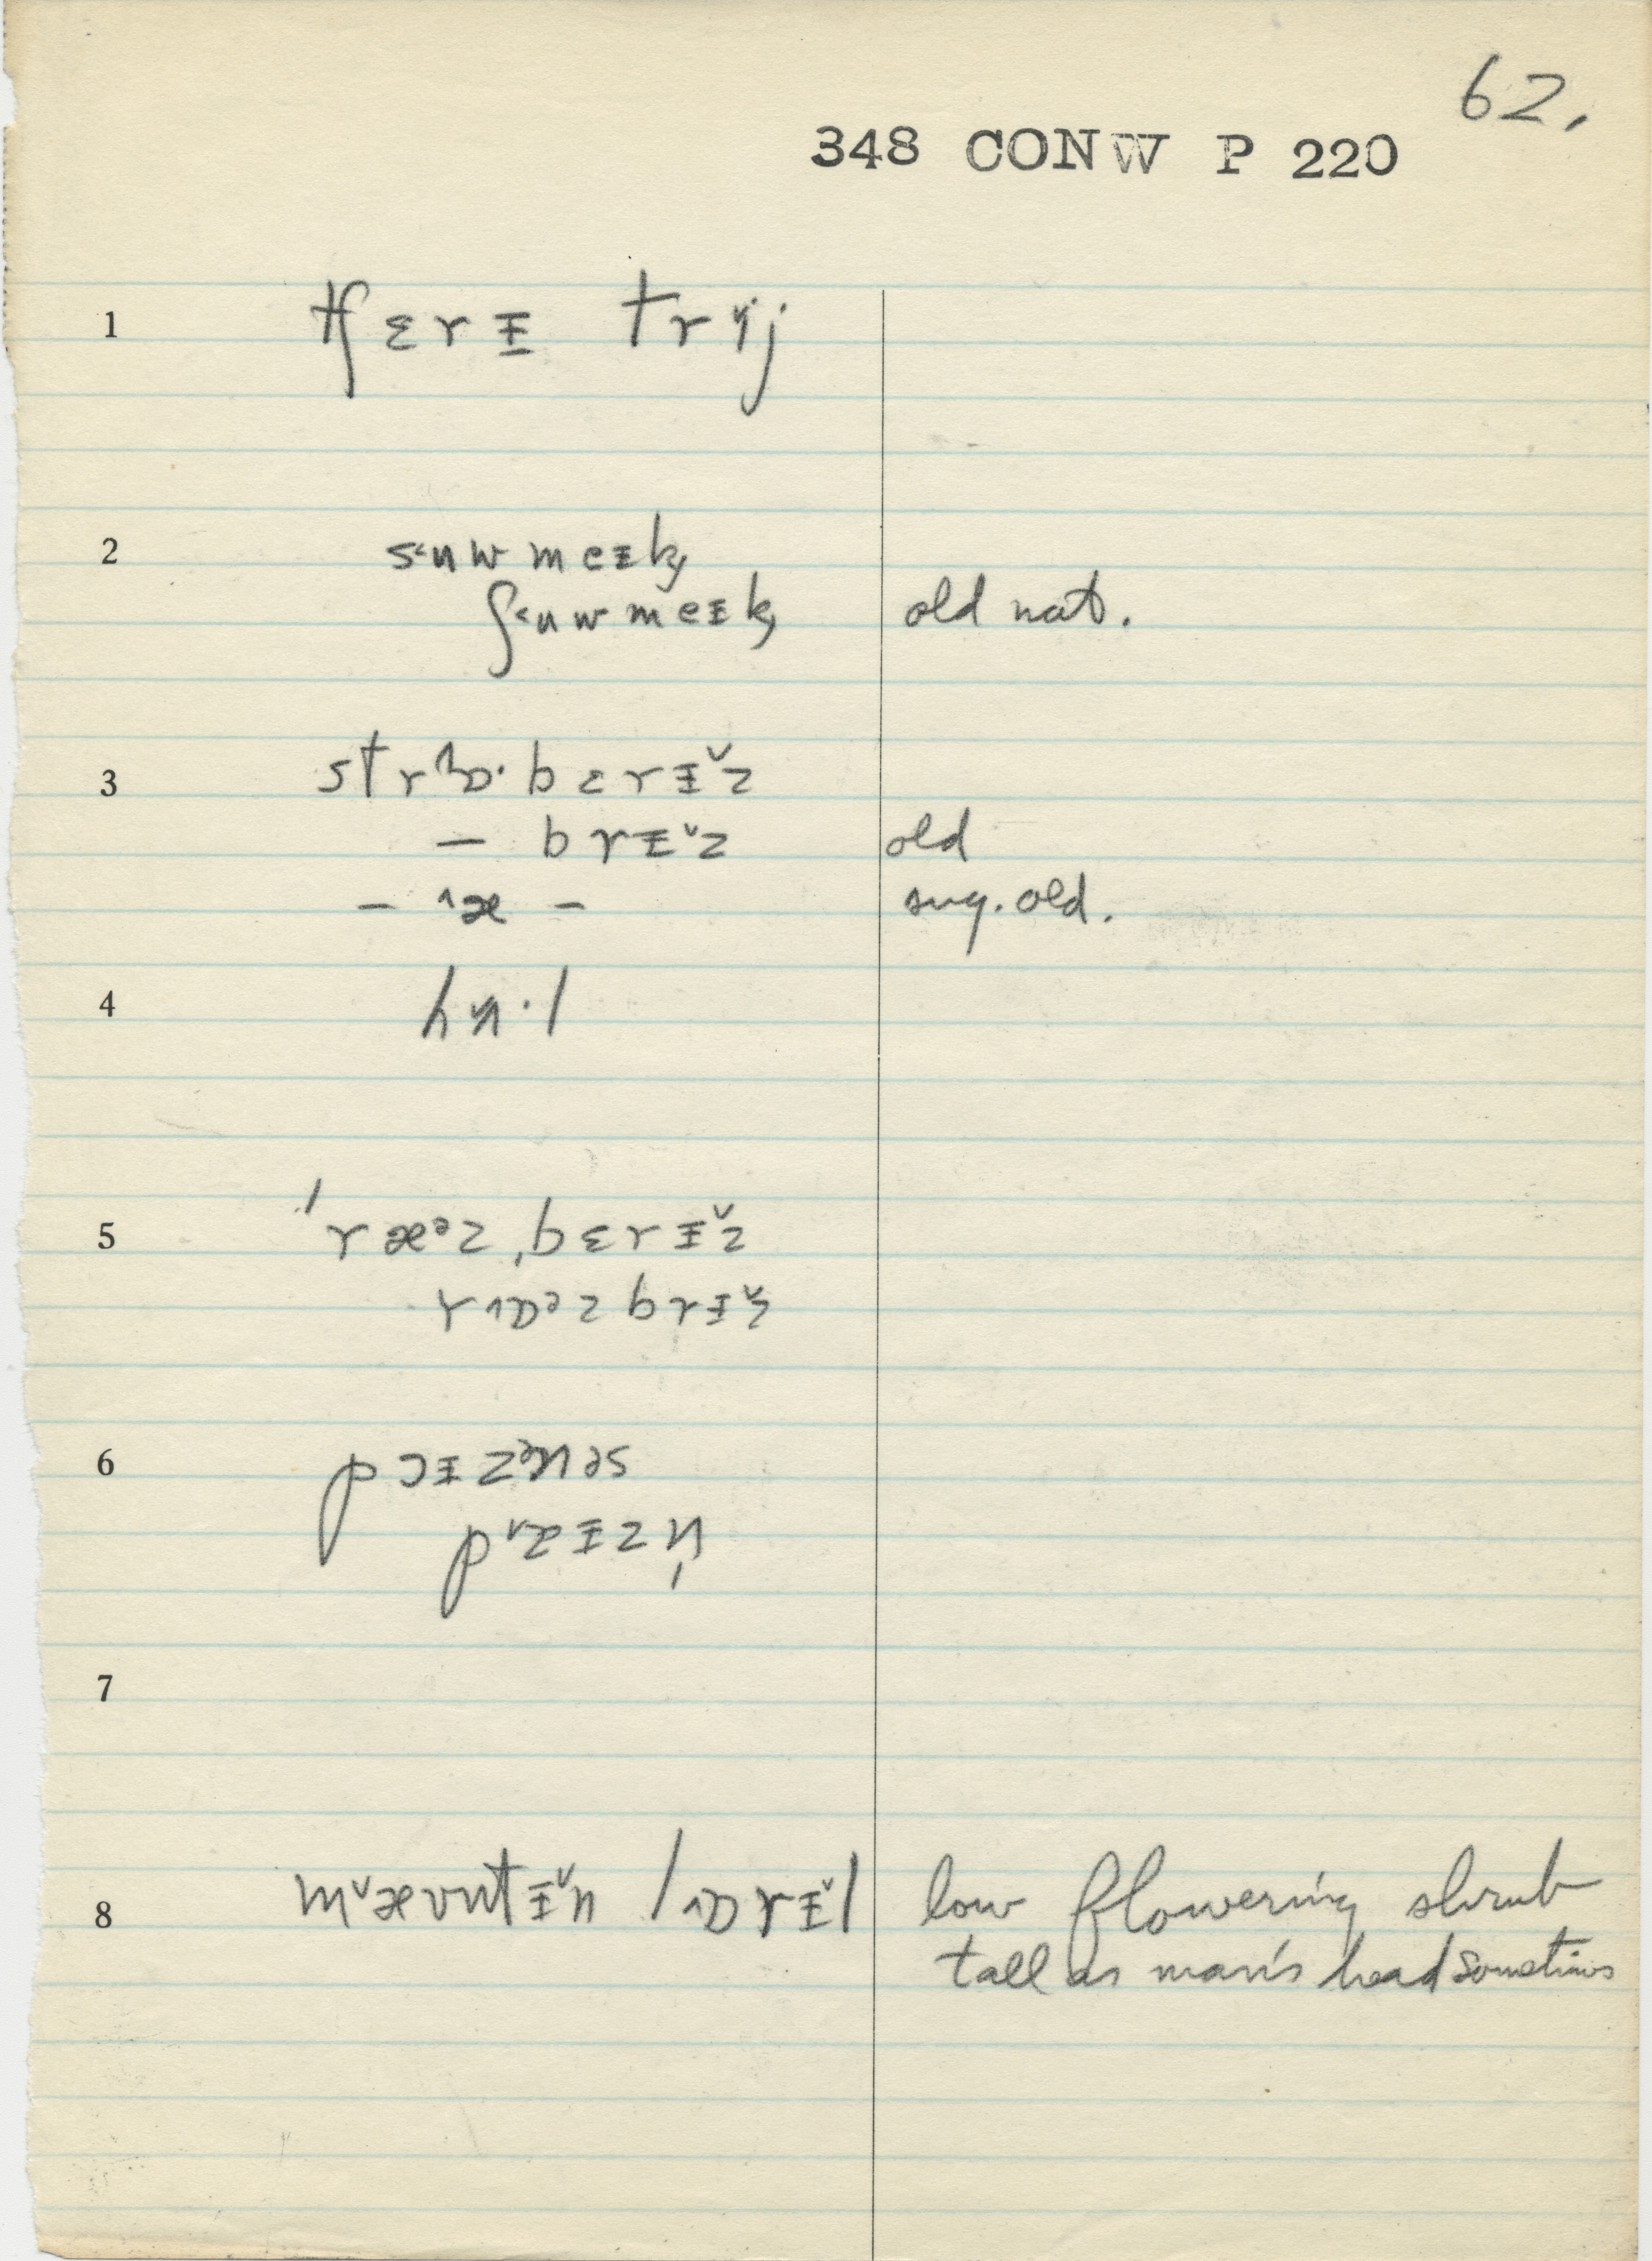 62.
348 CONW P 220
1 tʃɛrɪ trɪj
2 sᵋuwmeɪk
ʃᵋuwmeɪk old nat.
3 strɒ·bɛrɪz
— brɪz old
— ᶺæ — sug. old.
4 hʌ·l
5 ˈræᵊzˌbɛrɪz
rɒᵊzbrɪz
6 pɔɪzənəs
pɐɪzn̩
7
8 mæʊntɪn lɒrɪl low flowering shrub
tall as man's head sometimes